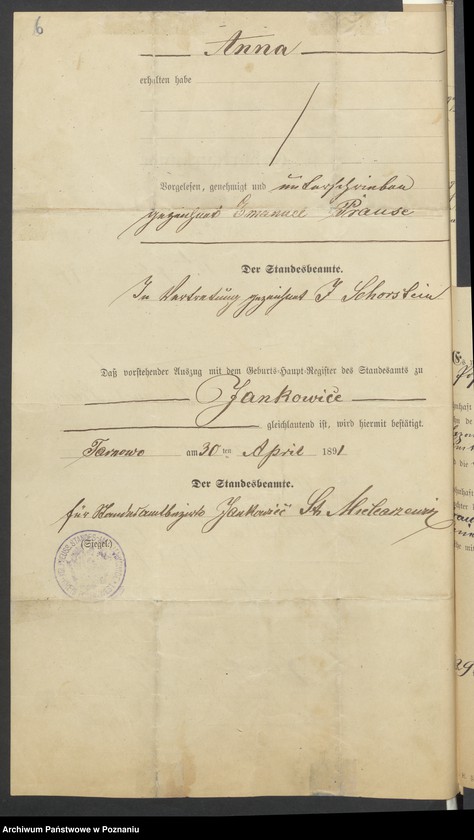 6
Anna
erhalten habe
Vorgelesen, genehmigt und unterschrieben
gezeichnet Emanuel Prause
Der Standesbeamte.
In Vertretung gezeichnet J Schorstein
Daß vorstehender Auszug mit dem Geburts-Haupt-Register des Standesamts zu
Jankowice
gleichlautend ist, wird hiermit bestätigt.
Tarnowo am 30 ten April 1891
Der Standesbeamte.
für Standesamtbezirk Jankowice St.
(Siegel.)
Archiwum Państwowe w Poznaniu